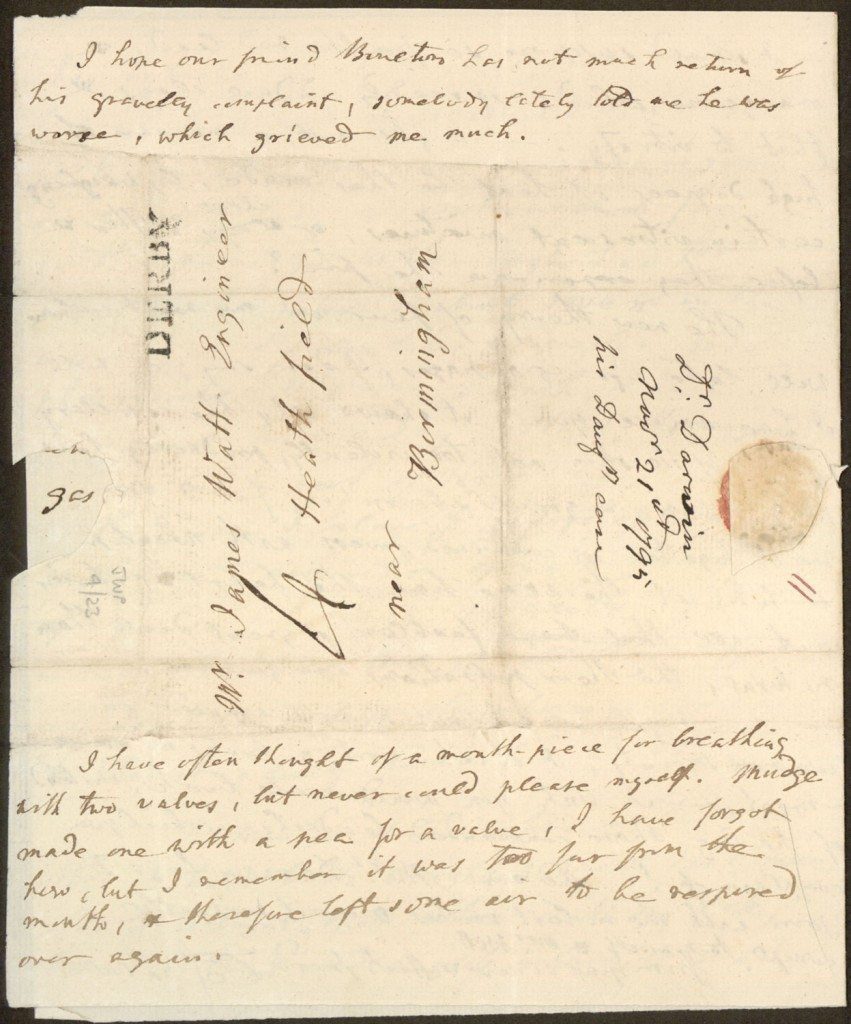 I hope our friend Boulton has not much return of
his graveley complaint, somebody lately told me he was
worse, which grieved me much.
DERBY
Mr. James Watt Engineer
Heathfield
near
Birmingham
Dr. Darwin
Novr 21st 1795
his Daugrs case
gas
JWP
9/23
11
I have often thought of a mouth-piece for breathing
with two valves, but never could please myself. Mudge
made one with a pea for a valve, I have forgot
how, but I remember it was too far from the
mouth, & therefore left some air to be respired
over again.